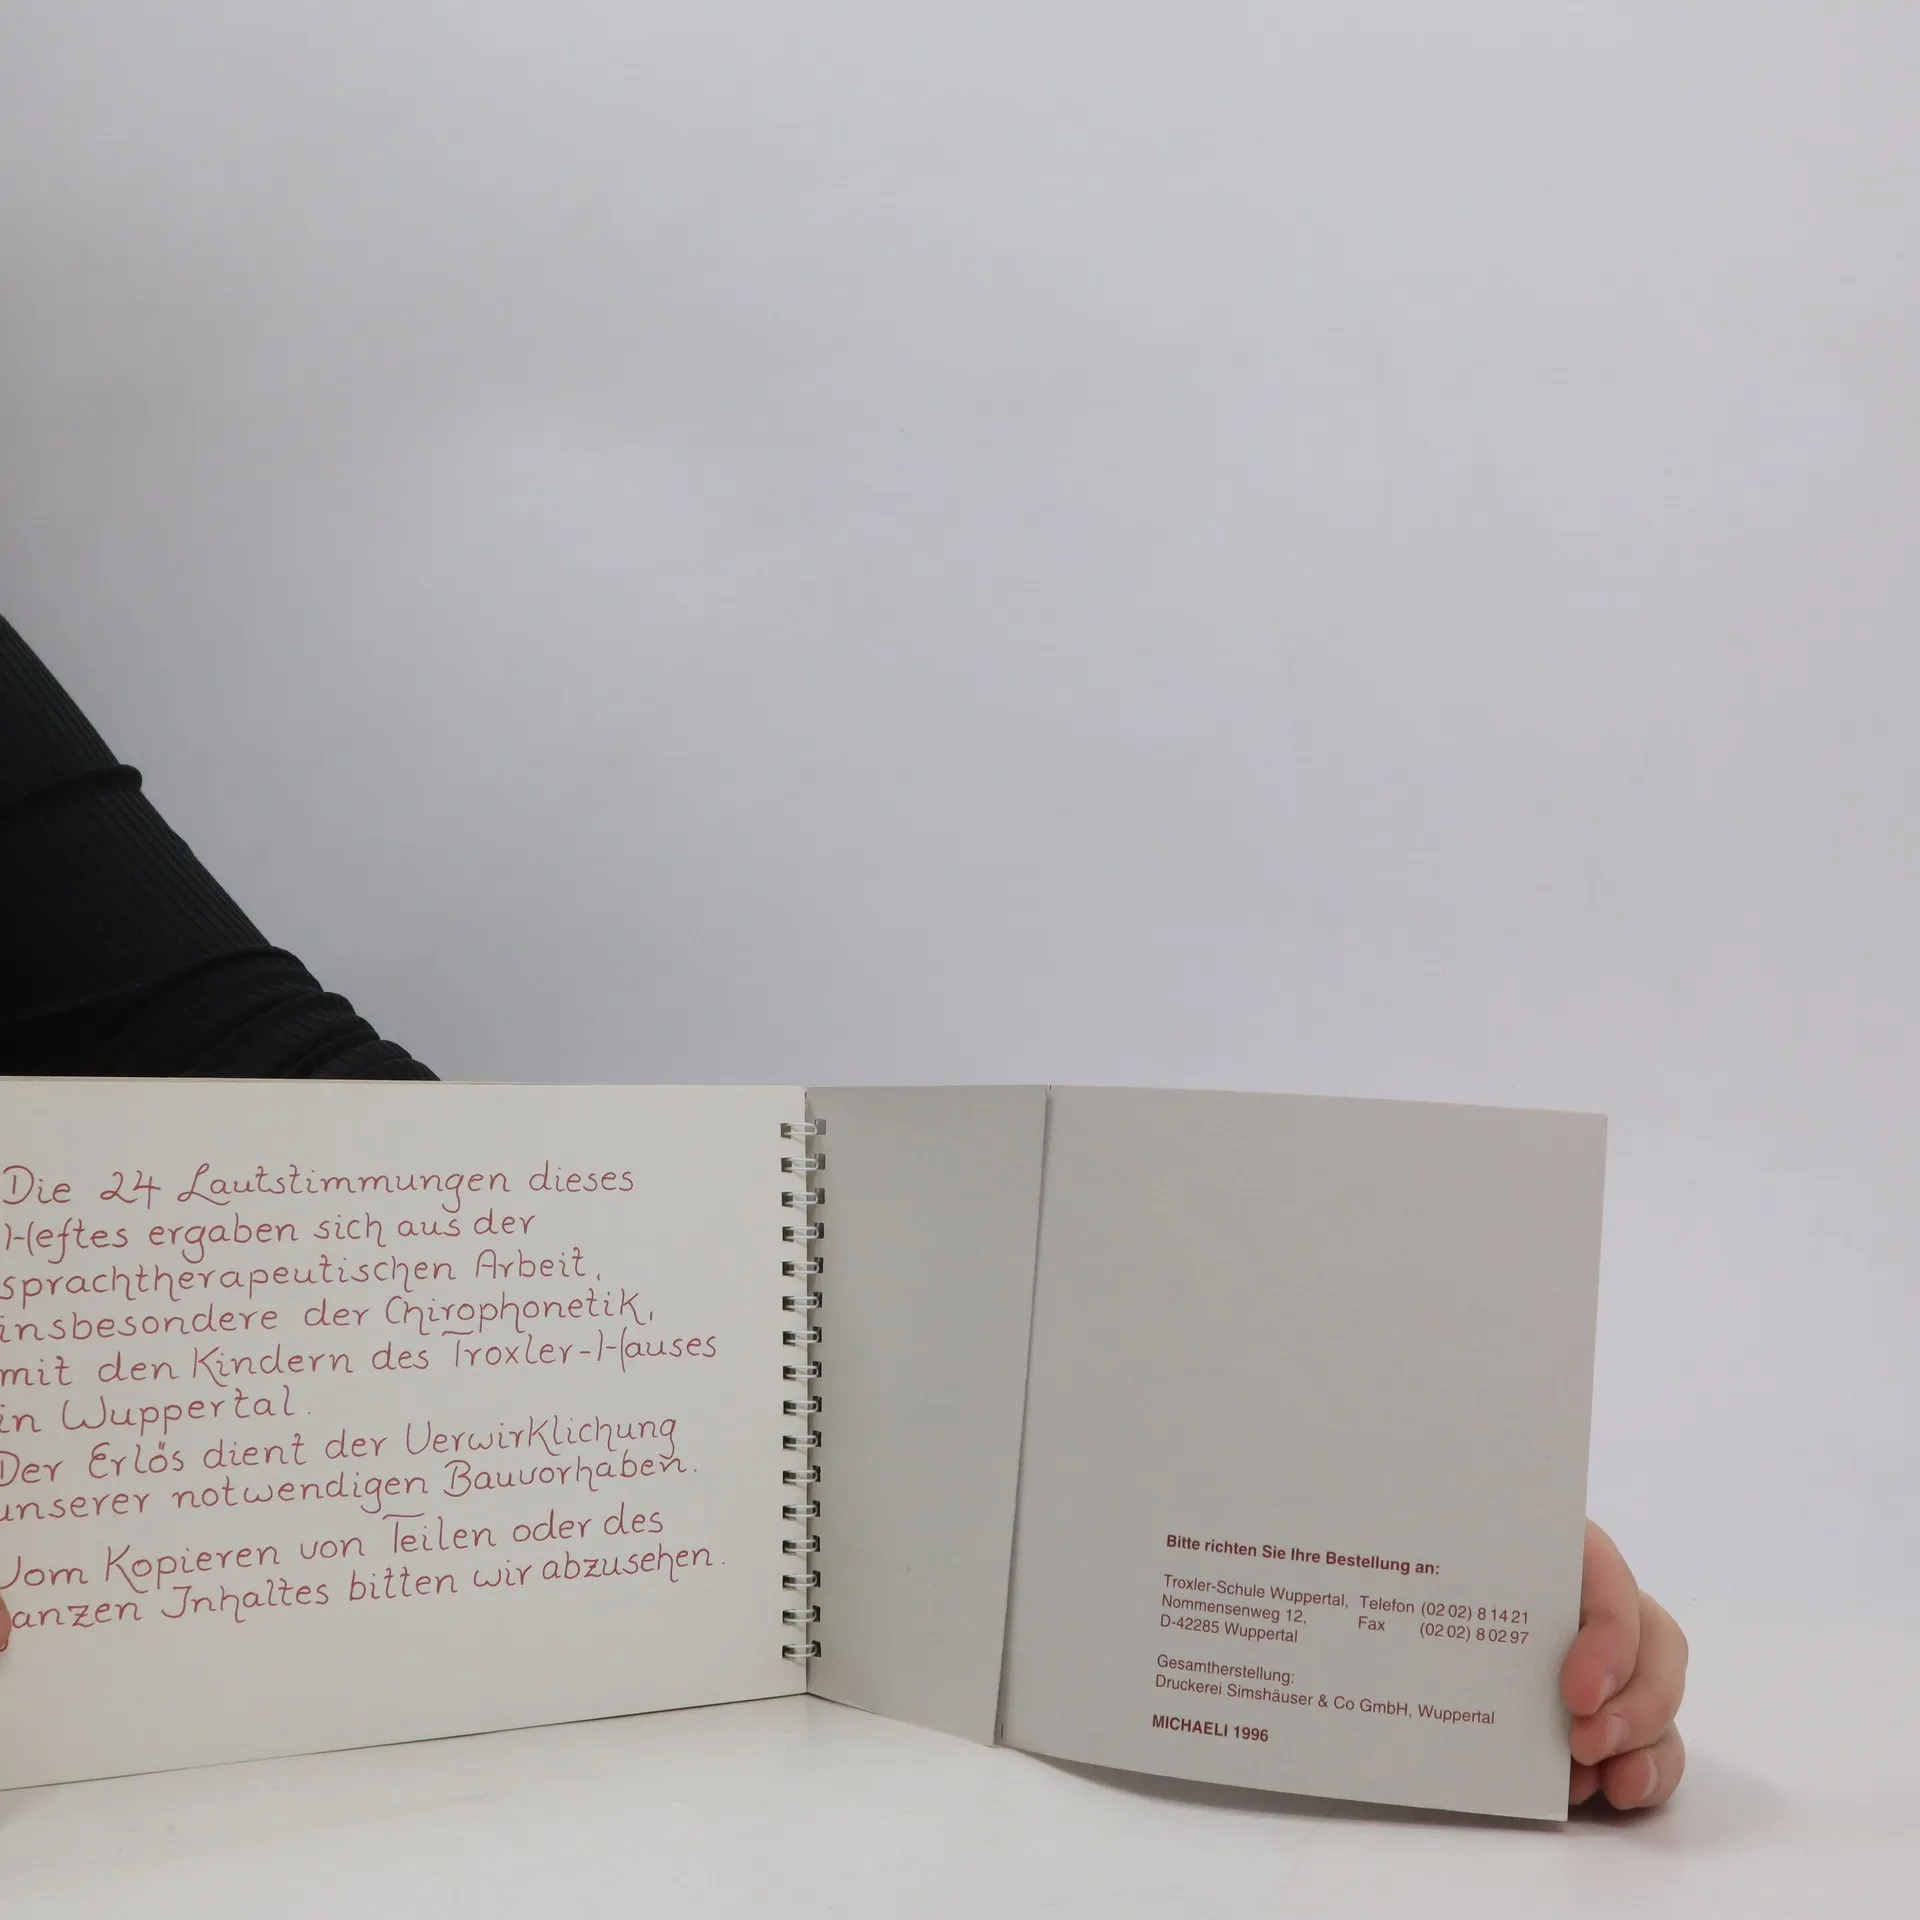 Die 24 Lautstimmungen dieses
Heftes ergaben sich aus der
sprachtherapeutischen Arbeit,
insbesondere der Chirophonetik,
mit den Kindern des Troxler-Hauses
in Wuppertal.
Der Erlös dient der Verwirklichung
unserer notwendigen Bauvorhaben.
Vom Kopieren von Teilen oder des
anzen Inhaltes bitten wir abzusehen.
Bitte richten Sie Ihre Bestellung an:
Troxler-Schule Wuppertal, Telefon (02 02) 8 14 21
Nommensenweg 12, Fax (02 02) 8 02 97
D-42285 Wuppertal
Gesamtherstellung:
Druckerei Simshäuser & Co GmbH, Wuppertal
MICHAELI 1996